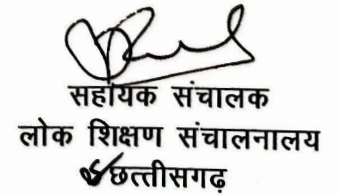 सहायक संचालक
लोक शिक्षण संचालनालय
छत्तीसगढ़